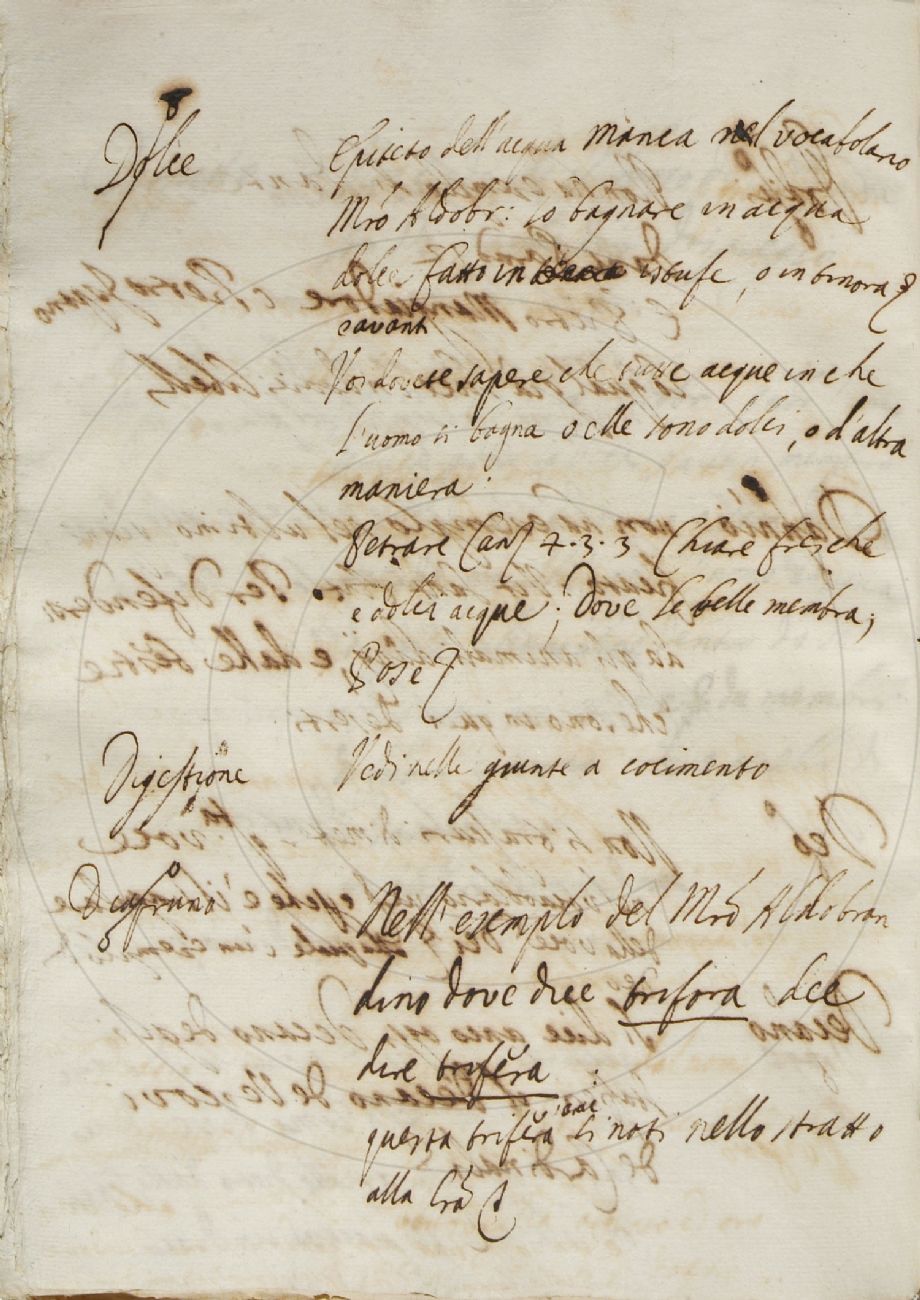 Dolce
Epiteto dell'acqua manca nel vocabolario
Mro Aldobr: lo bagnare in acqua
dolce fatto in istufe, o in tinora
avant
Voi dovete sapere che tutte acque in che
l'uomo si bagna o elle sono dolci, o d'altra
maniera.
Petrarc Canz 4.3.3 Chiare fresche
e dolci acque; Dove le belle membra;
Pose
Digestione
Vedi nelle giunte a cocimento
Diapruno
Nell'esemplo del Mro Aldobran
dino dove dice trifora dee
dire trifera.
questa trifera si noti nello stratto
alla